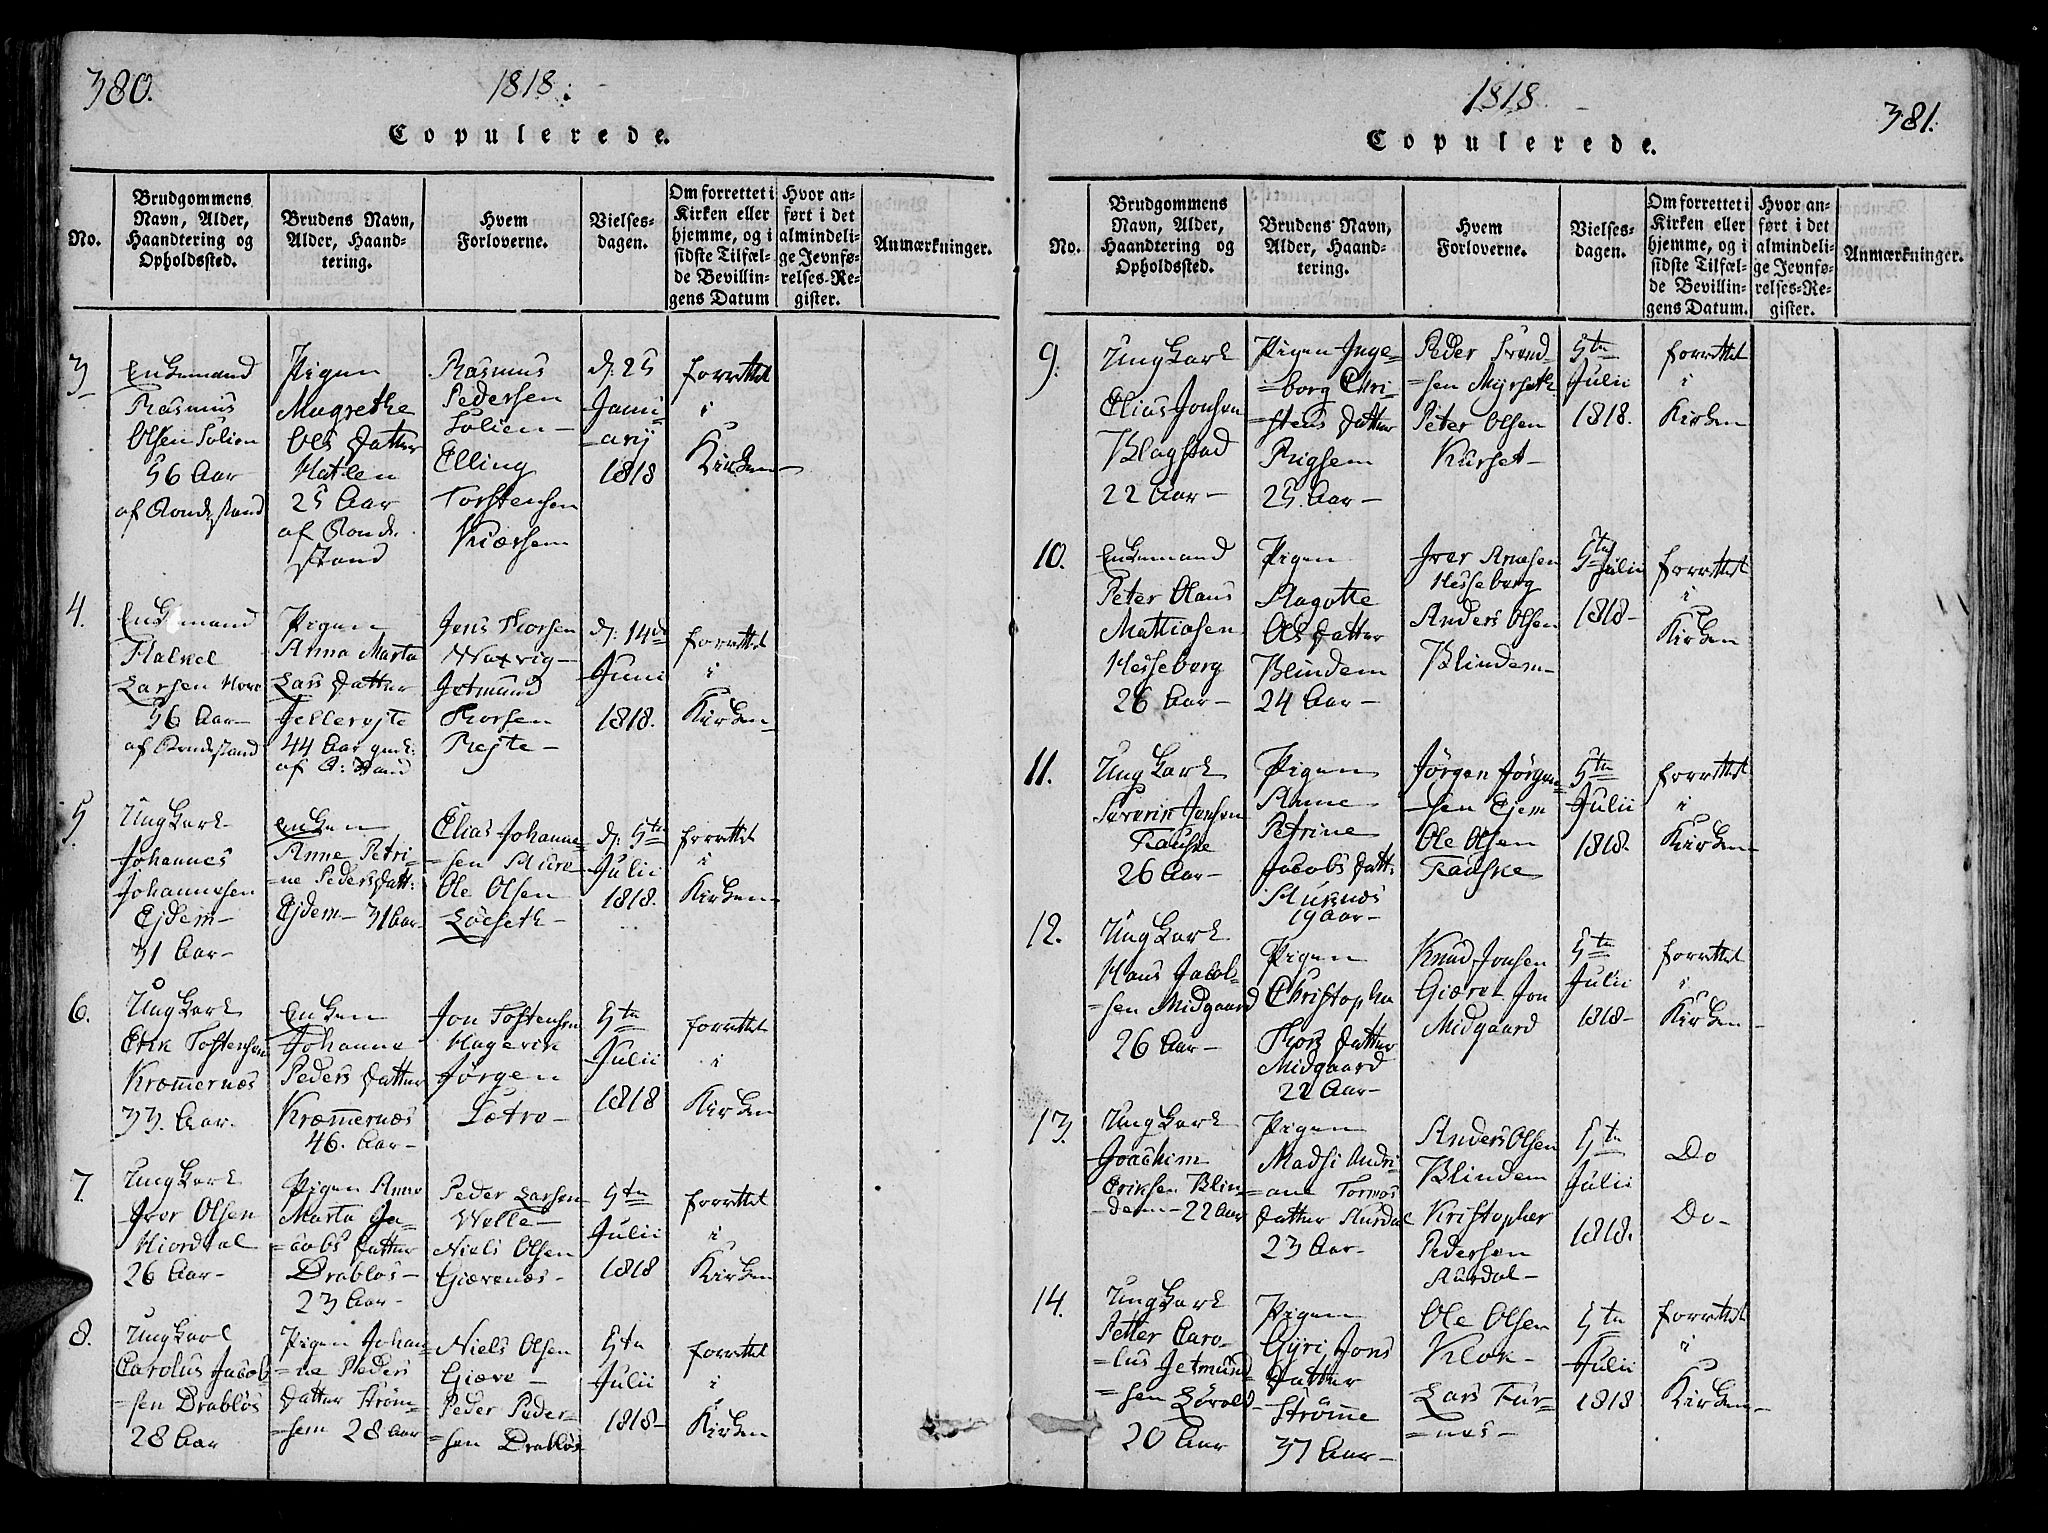 380.
1818.
Copulerede.
No.
Brudgommens Navn, Alder, Haandtering og Opholdssted.
Brudens Navn, Alder, Haandtering.
Hvem Forloverne.
Vielses-dagen.
Om forrettet i Kirken eller hjemme, og i sidste Tilfælde Bevillingens Datum
Hvor anført i det almindelige Jevnførelses-Register.
Anmærkninger.
3
Enkemand
Rasmus
Olsen Solien
56 Aar
af Bondestand
Pigen
Magrethe
Ols Datter
Hatlen
25 Aar
af Bonde
stand
Rasmus
Pedersen
Solien
Elling
Torstensen
d: 25
Janu-
-arij
1818
forrettet
i
Kirken
4.
Enkemand
Larsen
56 Aar
af Bondestand
Pigen
Anna Marta
Lars Datter
44 Aar
Jens Thorsen
Jetmund
Thorsen
d: 14de
Juni
1818.
forrettet
i
Kirken
5
Ung Karl
Johannes
Johannesen
Ejdem
31 Aar
Enken
Anne Petri-
-ne Peders Datt:
Ejdem 31 Aar
Elias Johanne-
-sen
Ole Olsen
d: 5te
Julii
1818.
forrettet
i
Kirken
6.
Ung Karl
Erik Tostensen
Kræmernæs
33. Aar.
Enken
Johanne
Peders Datter
Kræmernæs
46. Aar
Jon Tostensen
Hagevik
Jørgen
Sætre
5te
Julii
1818
forrettet
i
Kirken
7.
Ung Karl
Iver Olsen
Hiordal
26 Aar
Pigen Anne
Marta Ja-
-cobs Datter
Drabløs
23 Aar
Peder Larsen
Welle
Niels Olsen
Giævenæs
5te
Julii
1818
forrettet
i
Kirken
8.
Ung Karl
Carolus Jacob-
-sen Drabløs
28 Aar
Pigen Johan-
-ne Peders
Datter Strøm-
-sem 28 Aar
Niels Olsen
Giæve
Peder Peder-
-sen Drabløs
5te
Julii
1818
forrettet
i
Kirken
1818.
381.
Copulerede.
No.
Brudgommens Navn, Alder, Haandtering og Opholdssted.
Brudens Navn, Alder, Haandtering.
Hvem Forloverne.
Vielses-dagen.
Om forrettet i Kirken eller hjemme, og i sidste Tilfælde Bevillingens Datum.
Hvor anført i det almindelige Jevnførelses-Register.
Anmærkninger.
9.
Ung Karl
Elias Jonsen
Klagstad
22 Aar
Pigen Inge-
-borg Chri-
-stens Datter
Rigsem
25. Aar
Peder
-sen Myrseth
Peter Olsen
Kurset
5te
Julii
1818.
forrettet
i
Kirken
10.
Enkemand
Peter Olaus
Mathiasen
Hesseberg
26 Aar
Pigen
Ragothe
Ols Datter
Blindem
24 Aar
Iver Arnesen
Hesseberg
Anders Olsen
Blindem
5te Julii
1818
forrettet
i
Kirken
11.
Ung Karl
Severin Jensen
Fauske
26 Aar
Pigen
Anne
Petrine
Jacobs Datt:
Aurnæs
19 Aar
Jørgen Jørgen-
-sen Ejem
Ole Olsen
Fauske
5te
Julii
1818.
forrettet
i
Kirken
12.
Ung Karl
Hans Jacob-
-sen Midgaard
26 Aar
Pigen
Christopha
Thors Datter
Midgaard
22 Aar
Knud Jonsen
Giæret Jon
Midgaard
5te
Julii
1818
forrettet
i
Kirken
13.
Ung Karl
Joachim
Eriksen Blin-
-dem 22 Aar
Pigen
Madsi Andri-
-ane Tormos
Datter Aurdal
23 Aar
Anders Olsen
Blindem
Kristopher
Pedersen
Aurdal
5te
Julii
1818.
Do
Do
14.
Ung Karl
Petter Caro-
-lus Jetmund-
-sen
20 Aar
Pigen
Gyri Jons
Datter
Strømme
37 Aar
Ole Olsen
Klok
Lars Fur-
-nes
5te
Julii
1818
forrettet
i
Kirken